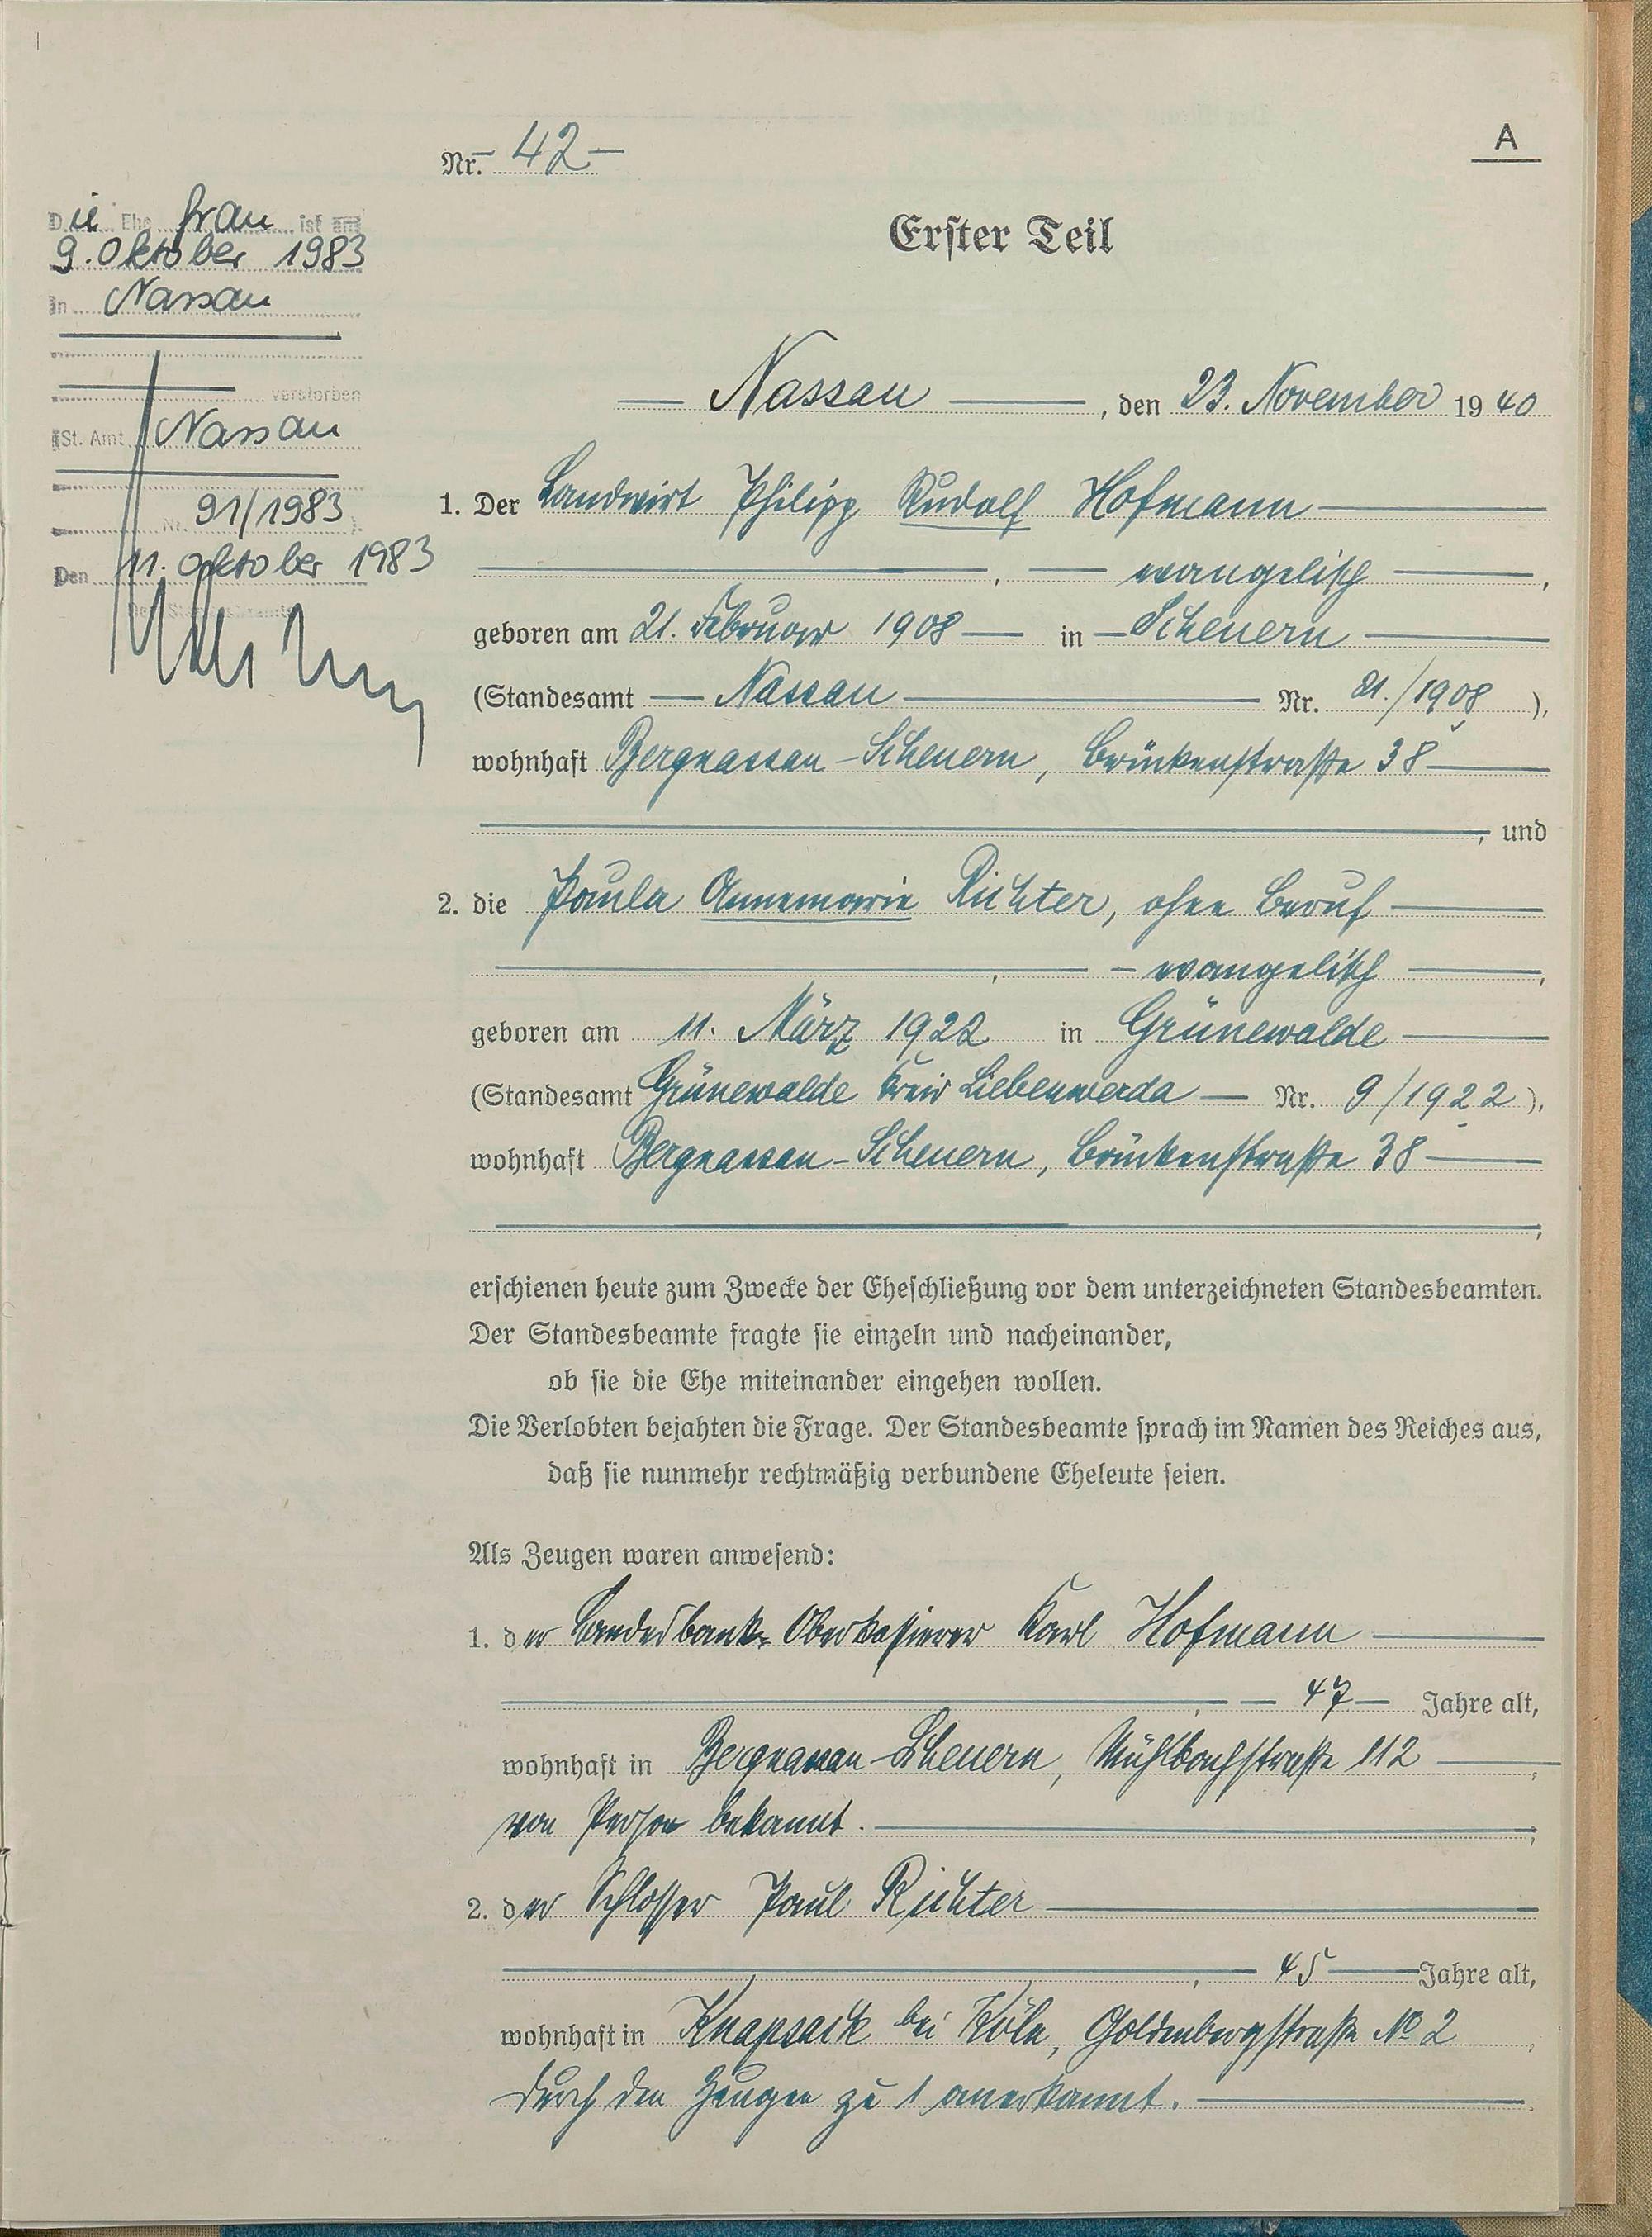 A
Nr. 42
Erster Teil
Die Ehefrau ist am
9. Oktober 1983
in Nassau
verstorben
(St. Amt Nassau
Nr. 91/1983).
Den 11. Oktober 1983
Der Standesbeamte
Nassau, den 23. November 1940
1. Der Landwirt Philipp Rudolf Hofmann
, evangelisch,
geboren am 21. Februar 1908 in Scheuern
(Standesamt Nassau Nr. 21./1908),
wohnhaft Bergnassau-Scheuern, Brückenstraße 38
, und
2. die Paula Annemarie Richter, ohne Beruf
, evangelisch,
geboren am 11. März 1922 in Grünewalde
(Standesamt Grünewalde Kreis Liebenwerda Nr. 9/1922),
wohnhaft Bergnassau-Scheuern, Brückenstraße 38
,
erschienen heute zum Zwecke der Eheschließung vor dem unterzeichneten Standesbeamten.
Der Standesbeamte fragte sie einzeln und nacheinander,
ob sie die Ehe miteinander eingehen wollen.
Die Verlobten bejahten die Frage. Der Standesbeamte sprach im Namen des Reiches aus,
daß sie nunmehr rechtmäßig verbundene Eheleute seien.
Als Zeugen waren anwesend:
1. der Landesbank-Oberkassierer Karl Hofmann
, 47 Jahre alt,
wohnhaft in Bergnassau-Scheuern, Mühlbachstraße 112,
von Person bekannt.
2. der Schlosser Paul Richter
, 45 Jahre alt,
wohnhaft in Knapsack bei Köln, Goldenbergstraße No 2,
durch den Zeugen zu 1 anerkannt.